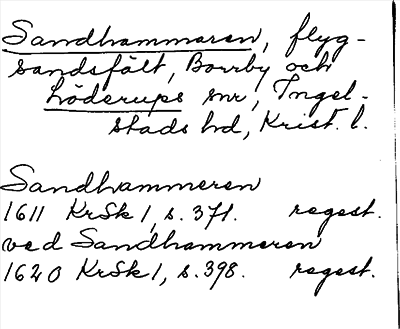 Sandhammaren, flyg-
sandsfält, Borrby och
Löderups snr, Ingel-
stads hd, Krist. l.
Sandhammeren
1611 KrSk 1, s. 371. regest.
ved Sandhammeren
1620 KrSk 1, s. 398. regest.